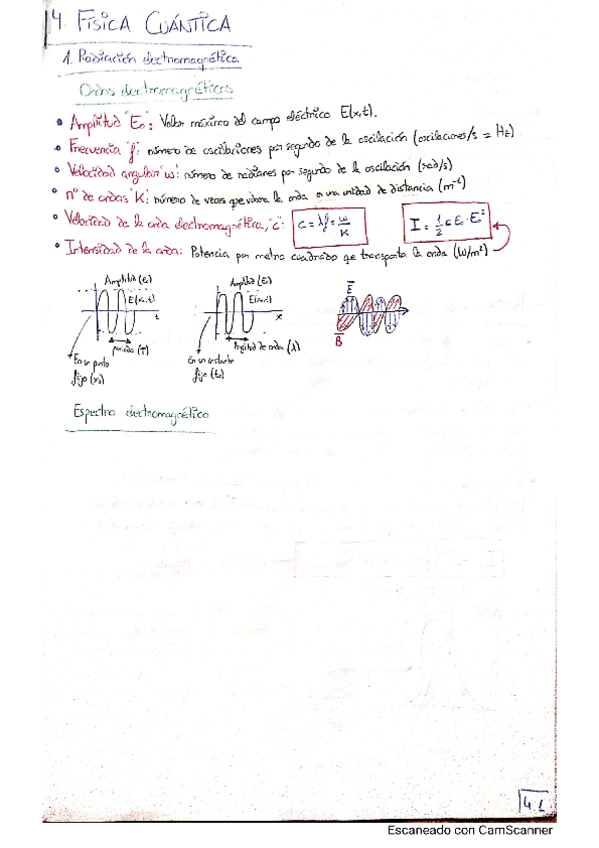 4. FÍSICA CUÁNTICA
1. Radiación electromagnética
Ondas electromagnéticas
• Amplitud "E₀": Valor máximo del campo eléctrico E(x,t).
• Frecuencia f: número de oscilaciones por segundo de la oscilación (oscilaciones/s = Hz)
• Velocidad angular "ω": número de radianes por segundo de la oscilación (rad/s)
• nº de ondas "K": número de veces que vibra la onda en una unidad de distancia (m⁻¹)
• Velocidad de la onda electromagnética, "c": c = λf = ω/K I = 1/2 c ε₀ · E₀²
• Intensidad de la onda: Potencia por metro cuadrado que transporta la onda (W/m²)
Amplitud (E₀) Amplitud (E₀) E
E(x₀,t) E(x,t₀)
t x
período (T) longitud de onda (λ) B
En un punto fijo (x₀) En un instante fijo (t₀)
Espectro electromagnético
4.1
Escaneado con CamScanner